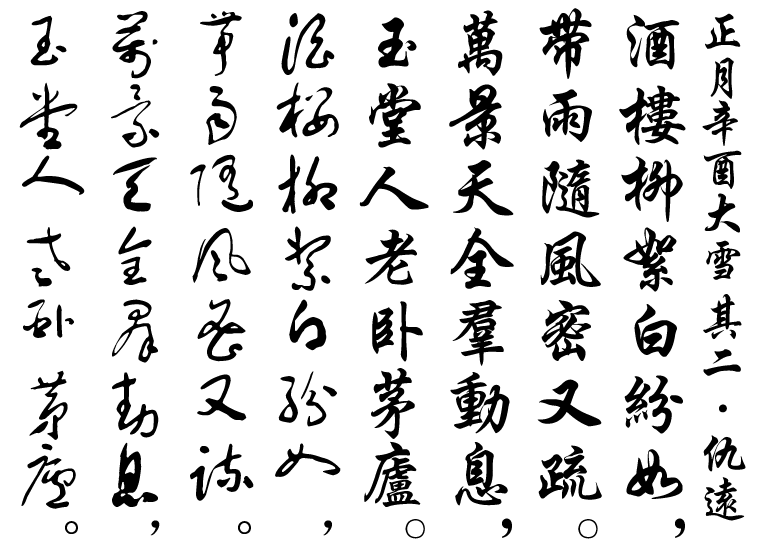 正月辛酉大雪其二·仇遠
酒樓柳絮白紛如，
帶雨隨風密又疏。
萬景天全羣動息，
玉堂人老卧茅廬。
酒樓柳絮白紛如，
帶雨隨風密又疏。
萬景天全羣動息，
玉堂人老卧茅廬。